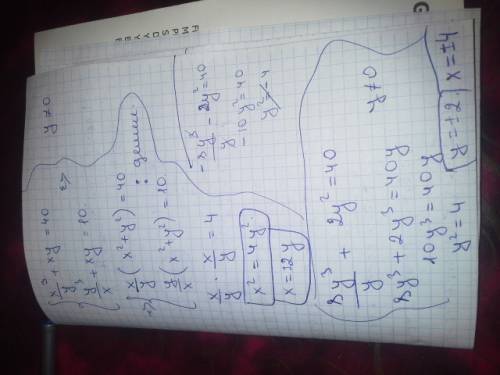 x³/y + xy = 40
y³/x + xy = 10. y ≠ 0
⇔
x/y (x² + y²) = 40
y/x (x² + y²) = 10. : делим.
x/y · x/y = 4
x² = 4y²
x = ±2y
-8y³/y - 2y² = 40
-10y² = 40
y² = -4
8y³/y + 2y² = 40 y ≠ 0
8y³ + 2y³ = 40y
10y³ = 40y
y² = 4
y = ±2; x = ±4